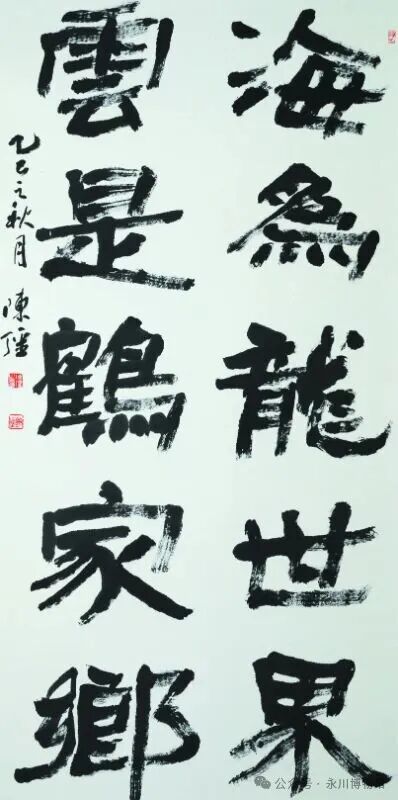 海為龍世界
雲是鶴家鄉
乙巳之秋月 陳
公众号·永川博物馆